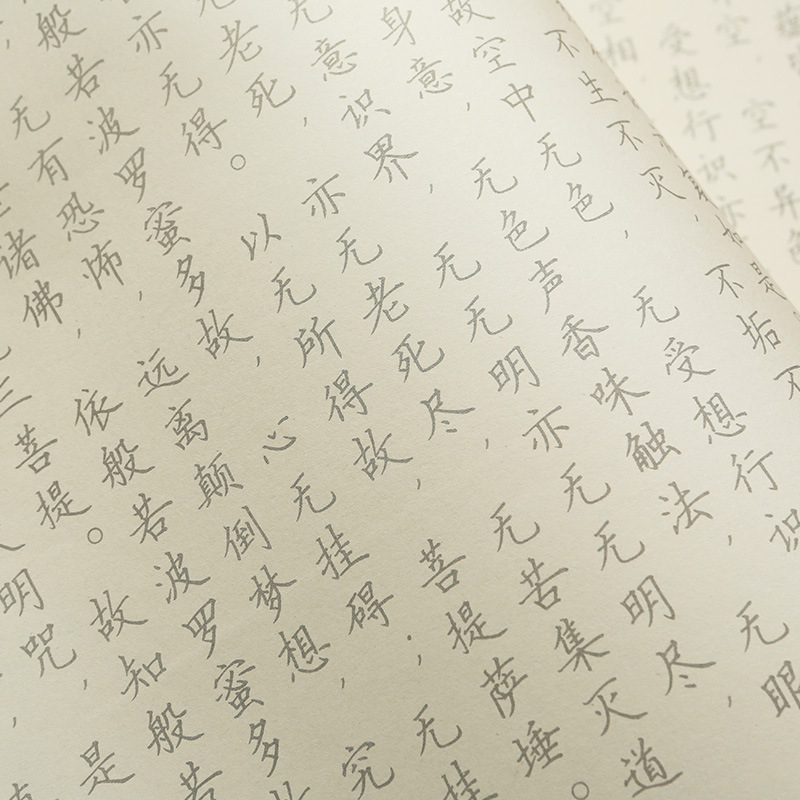 空不异色
受想行识亦
空相
不生不灭，不垢不
故空中无色，无受想行识
身意，无色声香味触法，无眼
无意识界，无无明，亦无无明尽，
无老死，亦无老死尽，无苦集灭道
亦无得。以无所得故，菩提萨埵。
般若波罗蜜多故，心无挂碍；无挂
无有恐怖，远离颠倒梦想，究
诸佛，依般若波罗蜜多故
三菩提。故知般若
明咒，是